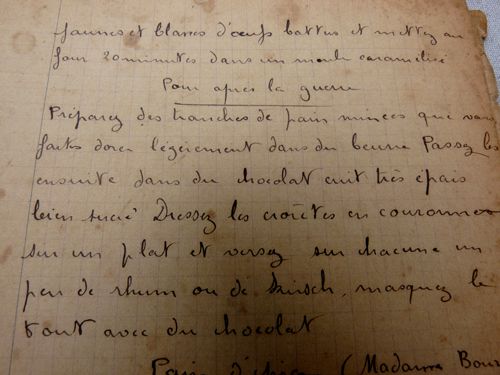 jaunes et blancs d'œufs battus et mettez au
four 20 minutes dans un moule caramélisé
Pour après la guerre
Préparez des tranches de pain minces que vous
faites dorer légèrement dans du beurre Passez les
ensuite dans du chocolat cuit très épais
bien sucré Dressez les croûtes en couronne
sur un plat et versez sur chacune un
peu de rhum ou de kirsch, masquez le
tout avec du chocolat
Pain d' (Madame